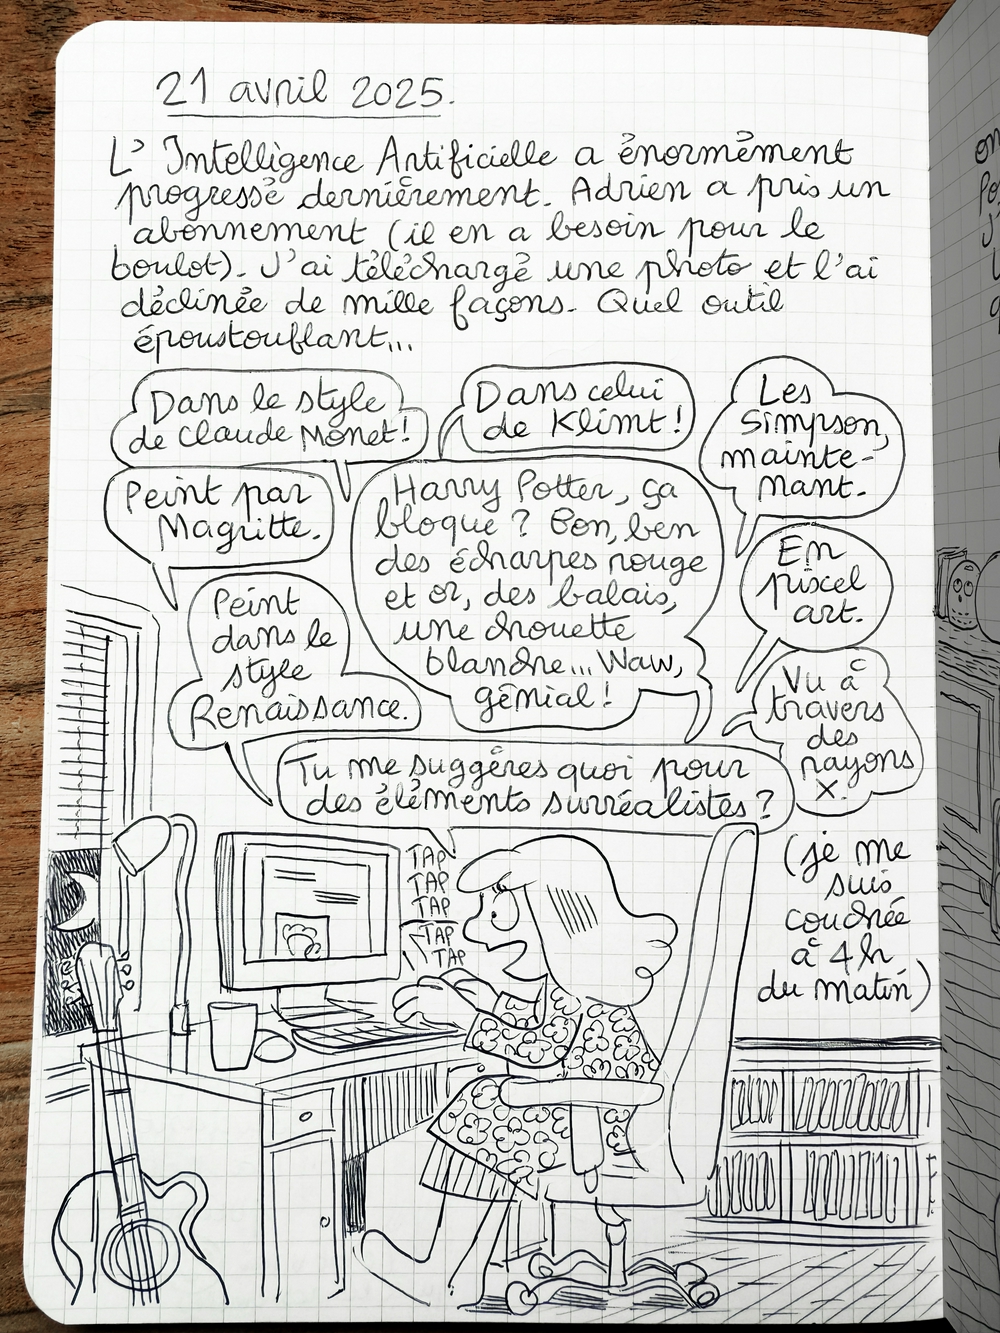 21 avril 2025.
L'Intelligence Artificielle a énormément
progressé dernièrement. Adrien a pris un
abonnement (il en a besoin pour le
boulot). J'ai téléchargé une photo et l'ai
déclinée de mille façons. Quel outil
époustouflant...
Dans le style
de Claude Monet!
Dans celui
de Klimt!
Les
Simpson,
mainte-
nant.
Peint par
Magritte.
Harry Potter, ça
bloque? Bon, ben
des écharpes rouge
et or, des balais,
une chouette
blanche... Waw,
génial!
En
pixel
art.
Peint
dans le
style
Renaissance.
Vu à
travers
des
rayons
X.
Tu me suggères quoi pour
des éléments surréalistes?
TAP
TAP
TAP
TAP
TAP
(je me
suis
couchée
à 4h
du matin)